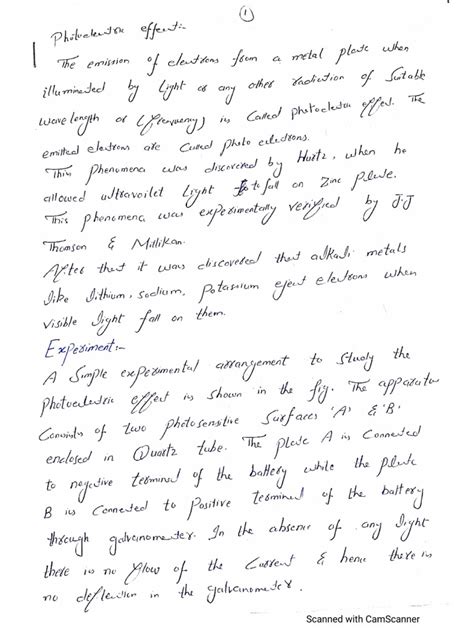 1
Photoelectric effect:-
The emission of electrons from a metal plate when
illuminated by light or any other radiation of Suitable
wavelength or (frequency) is Called photoelectric effect. The
emitted electrons are Called photo electrons.
This phenomena was discovered by Hurtz, when he
allowed ultravoilet light to fall on Zinc plate.
This phenomena was experimentally verified by J.J
Thomson & Millikan.
After that it was discovered that alkali metals
like lithium, sodium, Potassium eject electrons when
visible light fall on them.
Experiment:-
A Simple experimental arrangement to study the
photoelectric effect is shown in the fig. The apparatus
Consists of two photosensitive Surfaces 'A' & 'B'
enclosed in Quartz tube. The plate A is Connected
to negative terminal of the battery while the plate
B is Connected to Positive terminal of the battery
through galvanometer. In the absence of any light
there is no flow of the Current & hence there is
no deflection in the galvanometer.
Scanned with CamScanner